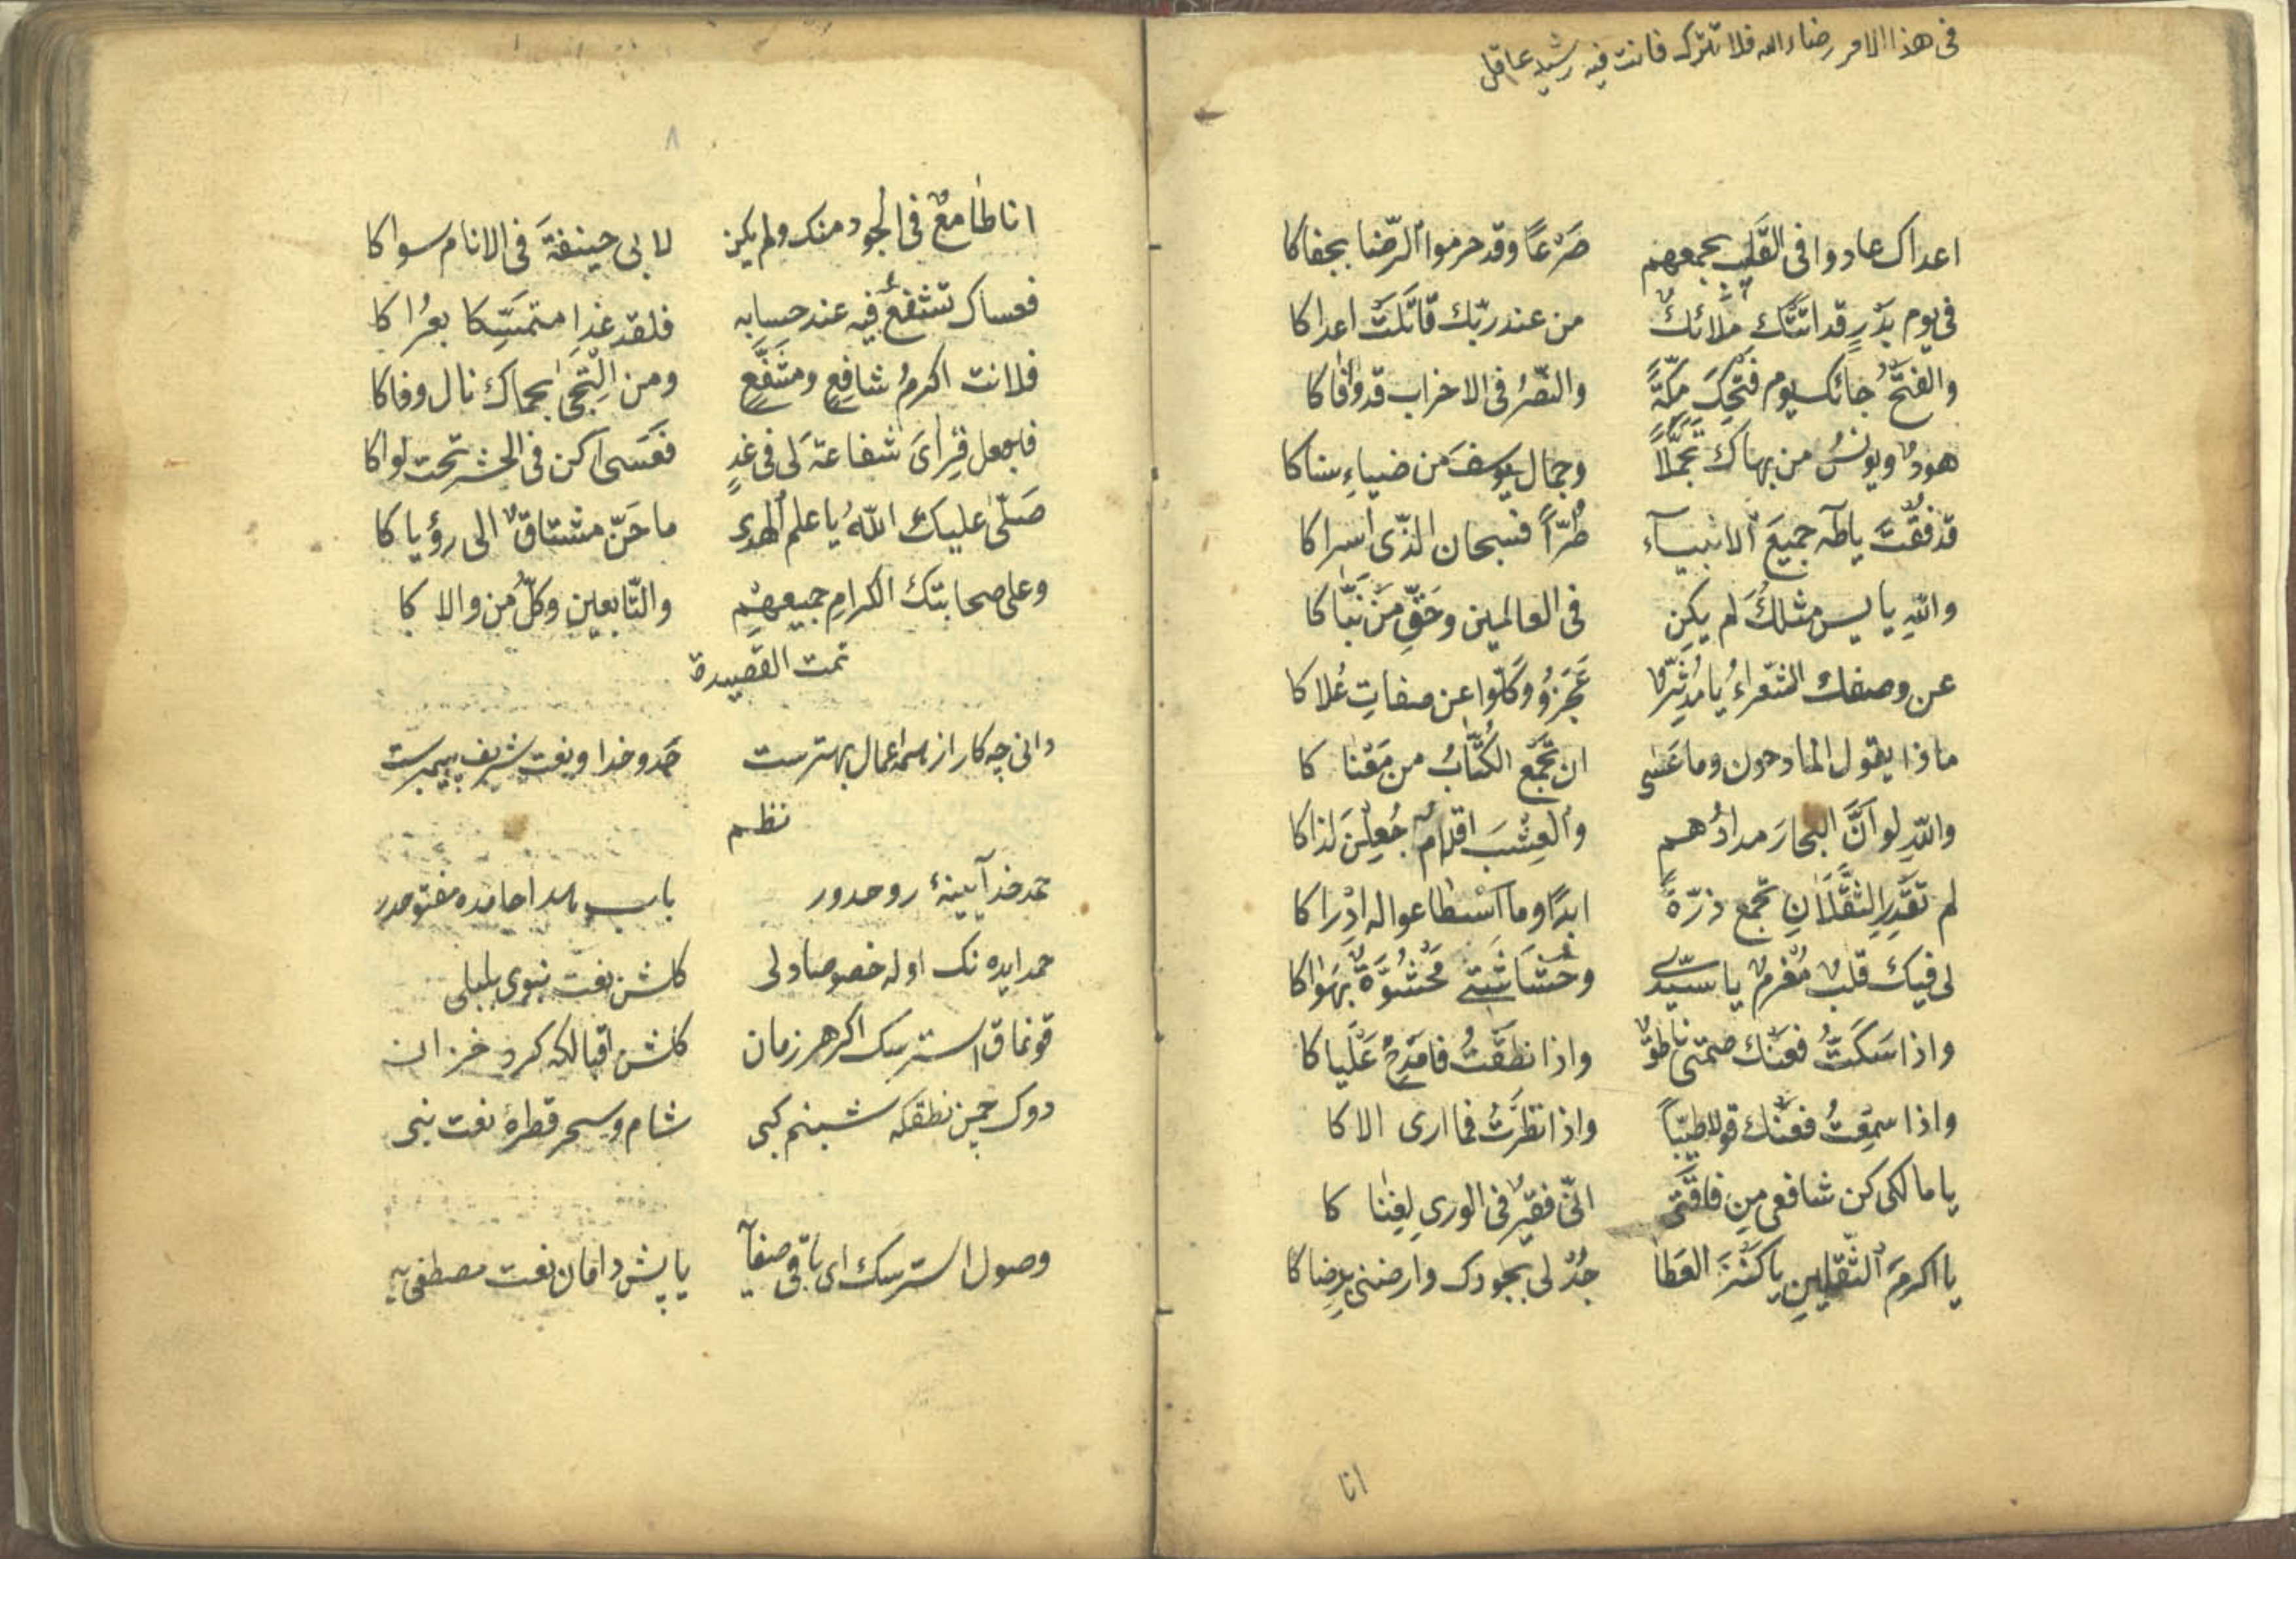 فى هذا الامر رضاء الله فلا تترك فانت فيه رشيد عاقل
اعداك عادوا فى القليب بجمعهم صَرْعًا وقد حرموا الرّضا بجفاكا
فى يوم بَدْرٍ قد اتتك ملائكٌ من عند ربّك قاتَلَت اعداكا
والفتحُ جائك يوم فتحِكَ مكّةً والنصْرُ فى الاحزاب قد وافاكا
هودٌ ويونسُ من بهاك تجمّلا وجمال يوسفَ من ضياءِ سناكا
قد فُقْتَ ياطه جميعَ الانبياء طُرّاً فسبحان الذّى اسراكا
واللهِ يا يس مثلكَ لم يكن فى العالمين وحَقِّ مَن نَبّاكا
عن وصفك الشعراءُ يا مدثّرٌ عَجَزُو وكلّوا عن صفاتِ عُلاكا
ماذا يقول المادحون وما عَسٰى ان تجمع الكُتّابُ من مَعْنا كا
واللهِ لو انَّ البحارَ مدادُهم والعشبَ اقلامٌ جُعِلْنَ لذاكا
لم تَقْدِرِ الثقلانِ تجمع ذرّةً ابدًا وما اسْطاعوا له اِدْراكا
لى فيك قلبٌ مُغرمٌ يا سيّدى وحُشَاشَتى مَحْشُوّةٌ بهَواكا
واذا سَكَتُّ فعنك صمتى ناطقٌ واذا نطَقْتُ فامْدحُ عَلْياكا
واذا سمِعْتُ فعنك قولاً طيّباً واذا نظَرْتُ فما ارى الاكا
يا مالكى كن شافعى مِن فاقتى انّى فقيرٌ فى الورى لِغِنا كا
يا اكرمَ الثّقلين يا كَنْزَ العَطا جُدْ لى بجودك وارضنى برِضاكا
انا
٨
انا طامعٌ فى الجود منك ولم يكن لابى حينفةَ فى الانام سواكا
فعساك تشفعُ فيه عند حسابِه فلقد غدا متمسّكا بعُراكا
فلانت اكرمُ شافِعٍ ومشفّعٍ ومن اِلتجى بحماك نال وفاكا
فاجعل قِراىَ شفاعةً لى فى غدٍ فعَسَى اكن فى الحشر تحت لواكا
صَلّى عليك اللهُ يا علم الهدى ما حَنّ مشتاقٌ الى رؤياكا
وعلى صحابتك الكرامِ جميعهم والتّابعين وكلّ من والا كا
تمت القصيدة
دانى چه كار از همه اعمال بهترست حَمدِ خدا ونعت شريف پيمبرست
نظم
حمد خدا آيينهٔ روحدور باب حامده مفتوحدر
حمد ايده نك اوله خصوصا دلى كلشن نعت نبوى بلبلى
قونماق استرسك اكر هر زمان كلشن اقبالكه كرد خزان
دوك چمن نطقكه شبنم كبى شام وسحر قطرهٔ نعت نبى
وصول استرسك اى باقى صفايه يا پش دامان نعت مصطفى يه